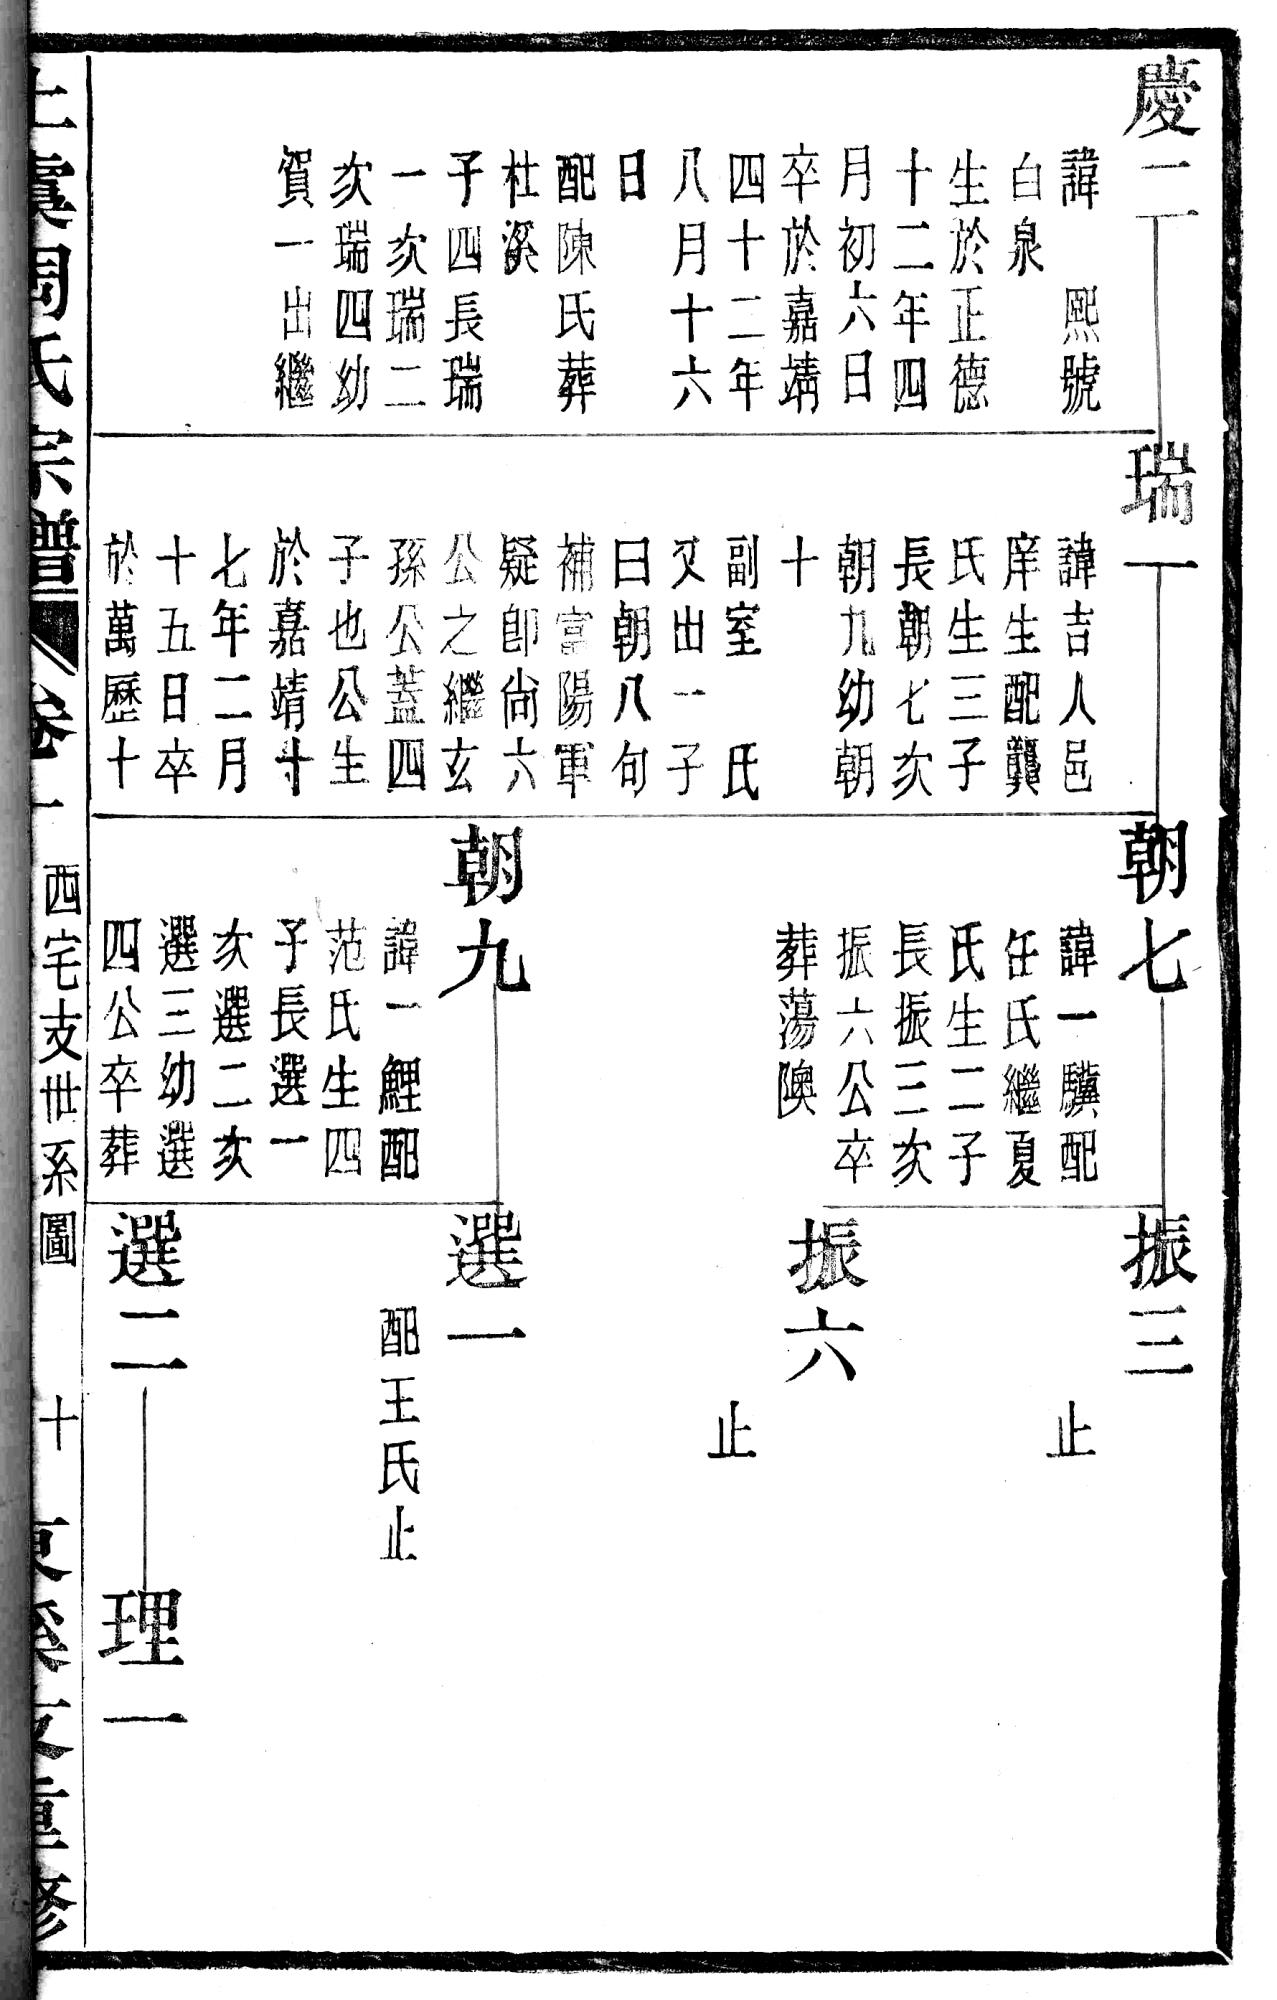 慶二
諱　熙號
白泉
生於正德
十二年四
月初六日
卒於嘉靖
四十二年
八月十六
日
配陳氏葬
杜溪
子四長瑞
一次瑞二
次瑞四幼
賀一出繼
瑞一
諱吉人邑
庠生配龔
氏生三子
長朝七次
朝九幼朝
十
副室　氏
又出一子
曰朝八句
補富陽軍
疑卽尙六
公之繼玄
孫公蓋四
子也公生
於嘉靖十
七年二月
十五日卒
於萬歷十
朝七
諱一驥配
任氏繼夏
氏生二子
長振三次
振六公卒
葬蕩隩
朝九
諱一鯉配
范氏生四
子長選一
次選二次
選三幼選
四公卒葬
振三
止
振六
止
選一
配王氏止
選二
理一
上虞周氏宗譜
卷一
西宅支世系圖
十
重修